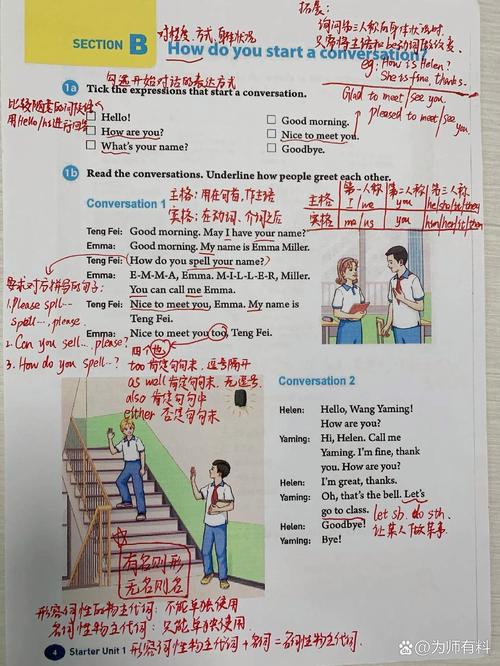 拓展:
询问第三人称的身体状况时,
只需将主语和be动词做改变.
eg: How is Helen?
She is fine, thanks.
对程度、方式、身体状况
SECTION B
How do you start a conversation?
勾选开始对话的表达方式
1a Tick the expressions that start a conversation.
Glad to meet/see you.
pleased to meet/see you
比较随意的问候语
用Hello/Hi进行回答
Hello!
Good morning.
How are you?
Nice to meet you.
What's your name?
Goodbye.
1b Read the conversations. Underline how people greet each other.
主格: 用在句首, 作主语
宾格: 在动词、介词之后
第一人称 第二人称 第三人称
主格 I/we you he/she/it/they
宾格 me/us you him/her/it/them
Conversation 1
Teng Fei: Good morning. May I have your name?
Emma: Good morning. My name is Emma Miller.
Teng Fei: How do you spell your name?
Emma: E-M-M-A, Emma. M-I-L-L-E-R, Miller.
You can call me Emma.
Teng Fei: Nice to meet you, Emma. My name is
Teng Fei.
Emma: Nice to meet you too, Teng Fei.
要求对方拼写的句子:
1. Please spll…
spell…, please.
2. Can you sell…, please?
3. How do you spell…?
四个也
too 肯定句句末, 逗号隔开
as well 肯定句句末, 无逗号
also 肯定句句中
either 否定句句末
Conversation 2
Helen: Hello, Wang Yaming!
How are you?
Yaming: Hi, Helen. Call me
Yaming. I'm fine, thank
you. How are you?
Helen: I'm great, thanks.
Yaming: Oh, that's the bell. Let's
go to class.
Helen: Goodbye!
Yaming: Bye!
let sb. do sth.
让某人做某事.
有名则形
无名则名
形容词性物主代词: 不能单独使用
名词性物主代词: 只能单独使用
形容词性物主代词 + 名词 = 名词性物主代词.
4 Starter Unit 1
@为师有料